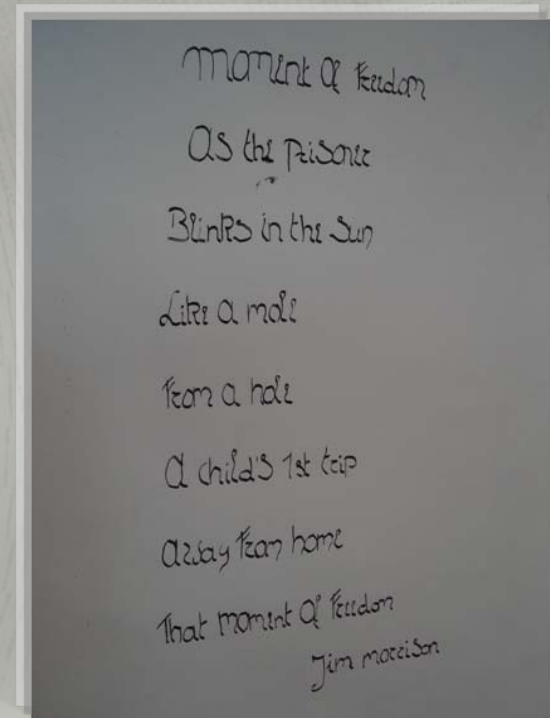 Moment Of Freedom
As the Prisoner
Blinks in the Sun
Like a mole
From a hole
A child's 1st trip
Away From home
That Moment Of Freedom
Jim Morrison